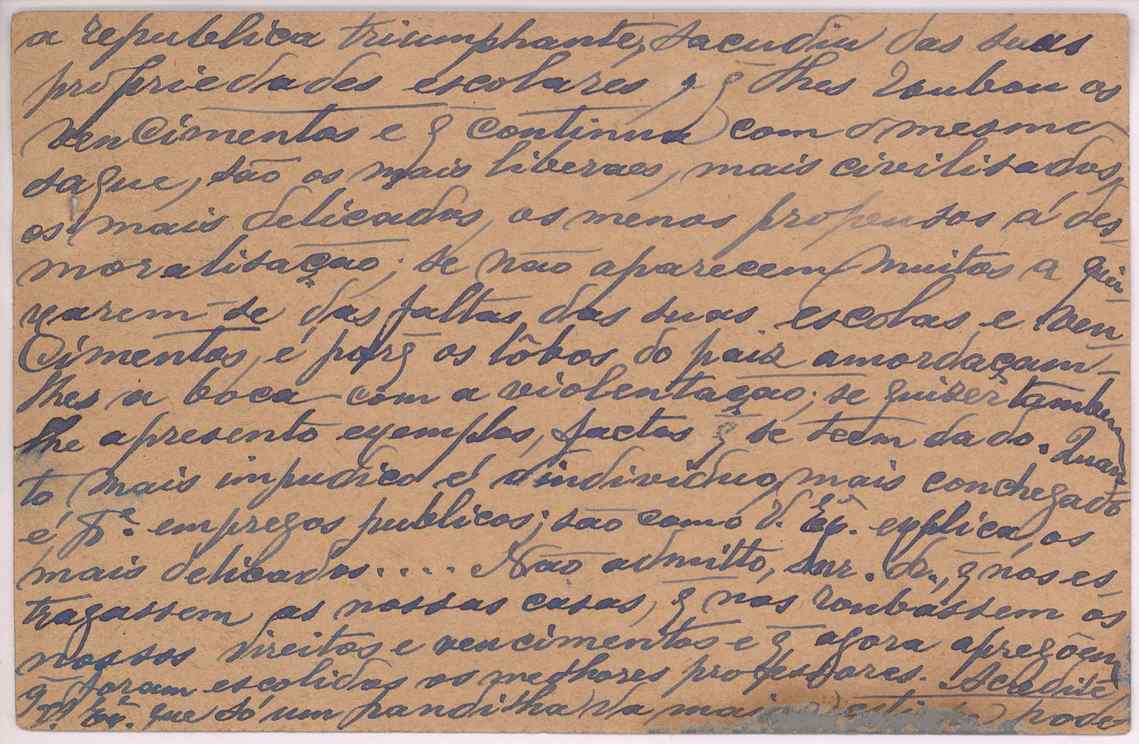 a republica triumphante, sacudiu das suas
propriedades escolares, q̃ lhes roubou os
vencimentos e q̃ continua com o mesmo
saque, são os mais liberaes, mais civilisados,
os mais delicados, os menos propensos á des-
moralisação; se não aparecem muitos a quei-
xarem-se das faltas das suas escolas e ven
cimentos, é porq̃ os lôbos do paiz amordaçam-
lhes a boca com a violentação; se quizer tambem
lhe apresento exemplos, factos q̃ se teem dado. Quan
to mais impudico é o individuo, mais conchegado
é pª. empregos publicos; são como V. Exª. explica, os
mais delicados..... Não admitto, Snr. dr., q̃ nos es
tragassem as nossas casas, q̃ nos roubassem os
nossos direitos e vencimentos e q̃ agora apregôem
q̃ foram escolidos os melhores professores. Acredite
V. Exª. que só um pandilha da mais pode